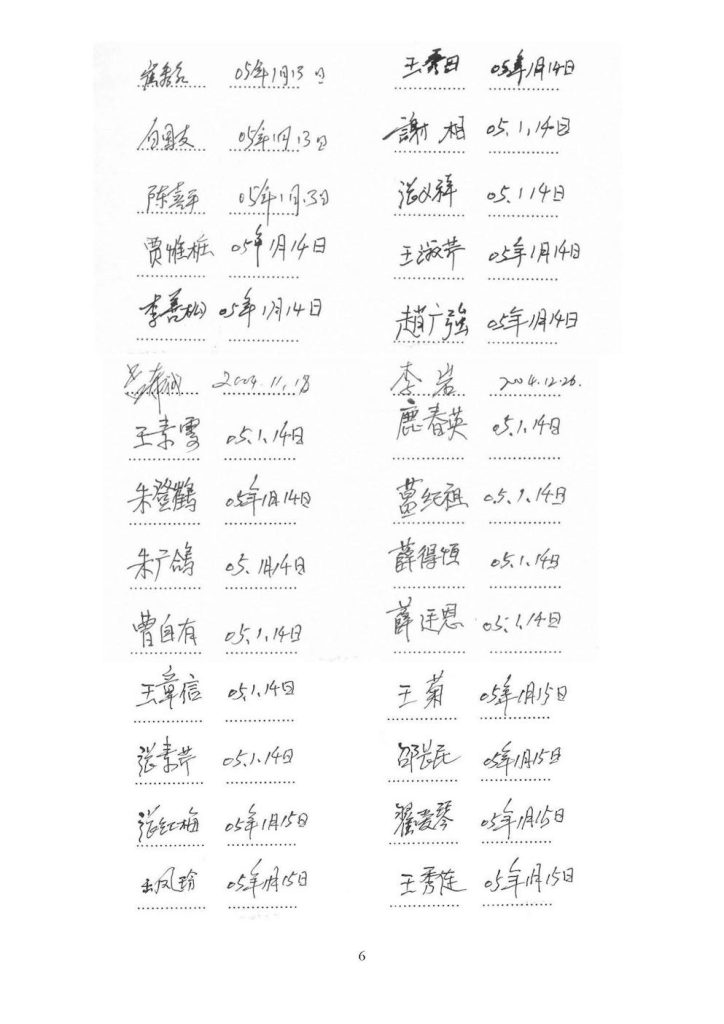 05年1月13日 王秀日 05年1月14日
05年1月13日 謝相 05.1.14日
陈喜平 05年1月13日 张义祥 05.1 14日
贾惟 05年1月14日 王淑芹 05年1月14日
李善松 05年1月14日 趙广強 05年1月14日
2004.11.18 李岩 2004.12.26.
王素雯 05.1.14日 鹿春英 05.1.14日
朱登鶴 05年1月14日 纪祖 05.1.14日
朱广鴿 05.1月14日 薛得恒 05.1.14日
曹自有 05.1.14日 薛廷恩 05.1.14日
王章信 05.1.14日 王菊 05年1月15日
张素芹 05.1.14日 邵 民 05年1月15日
张红梅 05年1月15日 翟爱琴 05年1月15日
凤玲 05年1月15日 王秀莲 05年1月15日
6